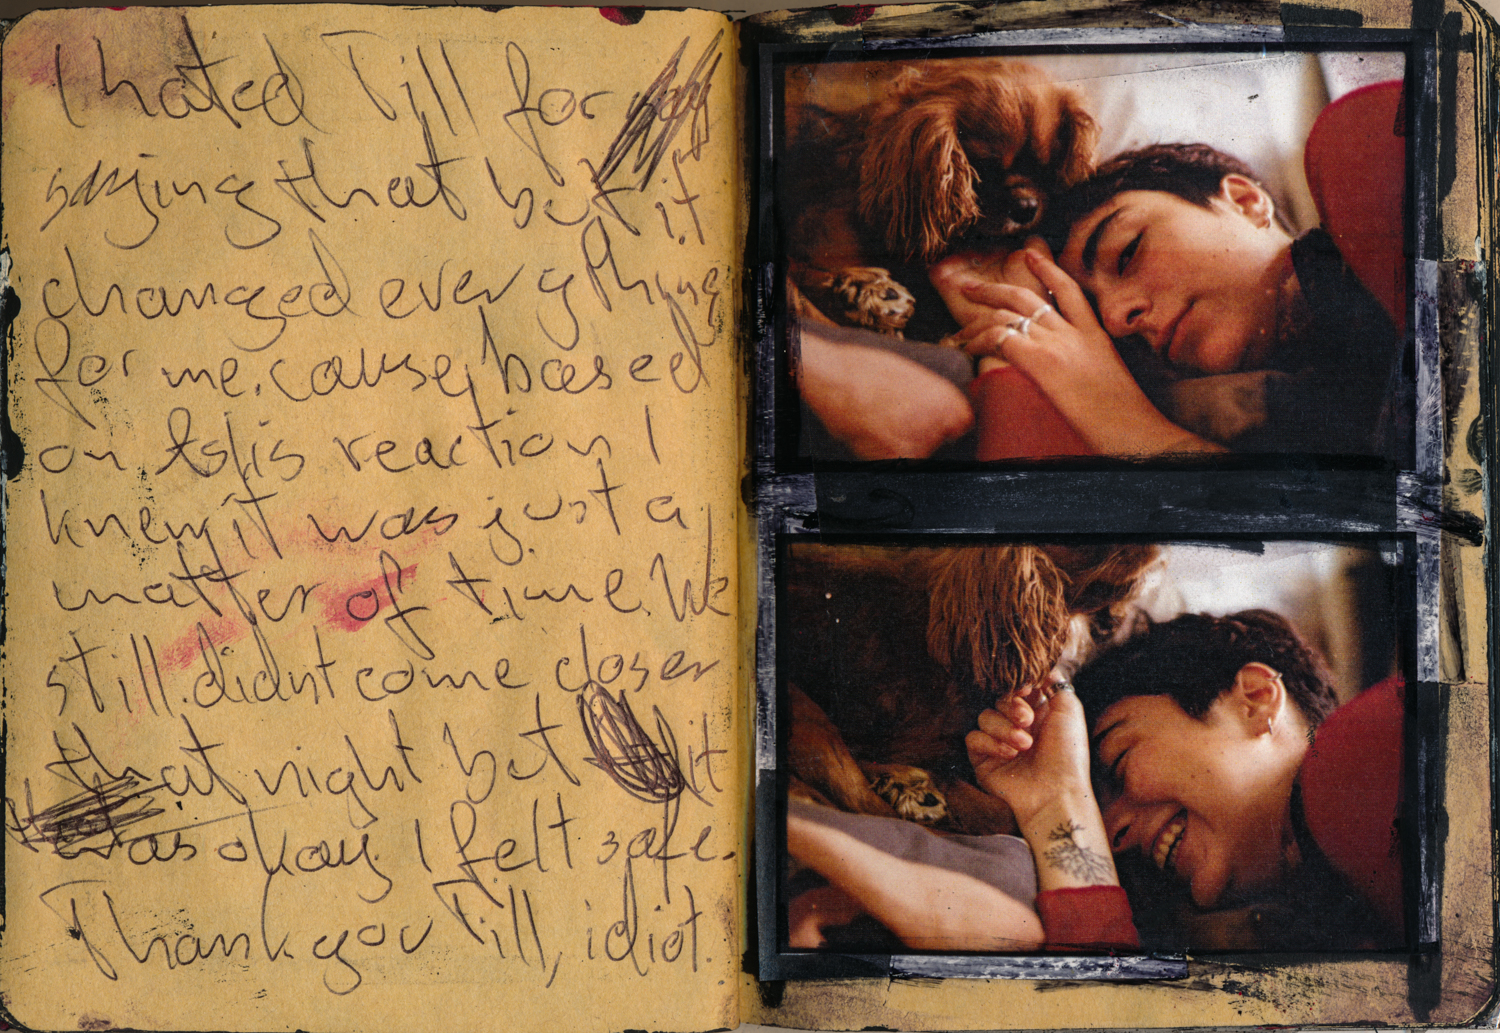 I hated Till for
saying that but it
changed everything
for me. cause based
on Aslis reaction I
knew it was just a
matter of time. We
still didnt come closer
that night but it
was okay. I felt safe.
Thank you Till, idiot.